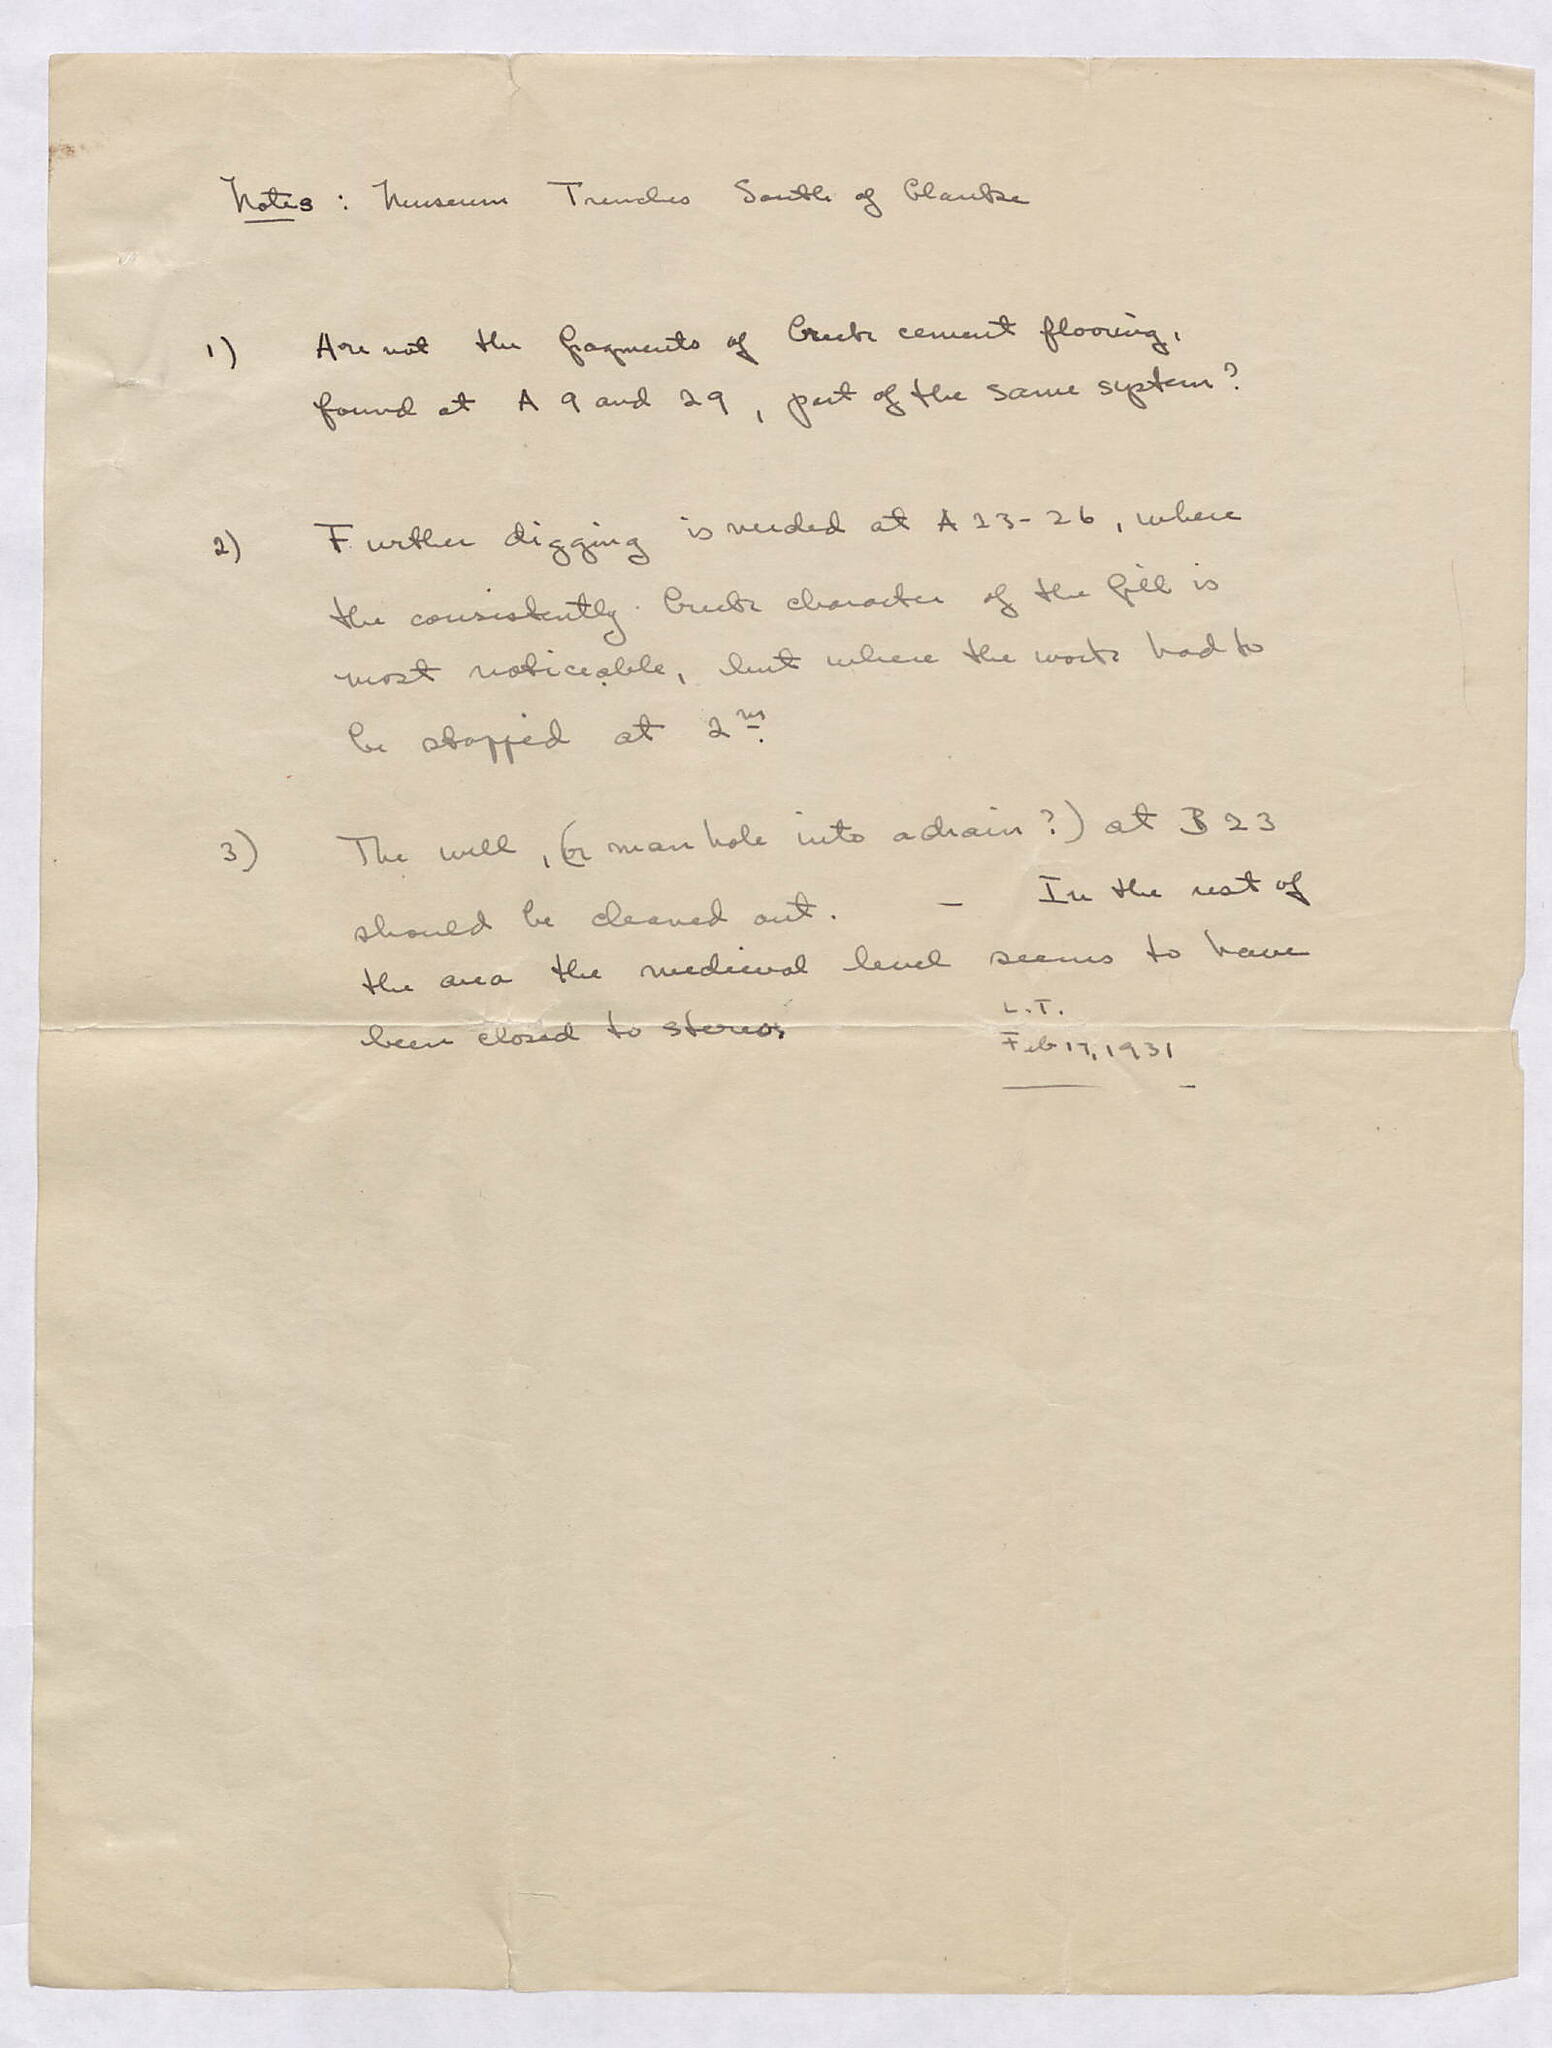 Notes : Museum Trenches South of Glauke
1) Are not the fragments of Greek cement flooring,
found at A 9 and 29, part of the same system?
2) Further digging is needed at A 23-26, where
the consistently Greek character of the fill is
most noticeable, but where the work had to
be stopped at 2m.
3) The well, (or manhole into a drain?) at B 23
should be cleaned out. - In the rest of
the area the medieval level seems to have
been closed to stereo.
L.T.
Feb 17, 1931